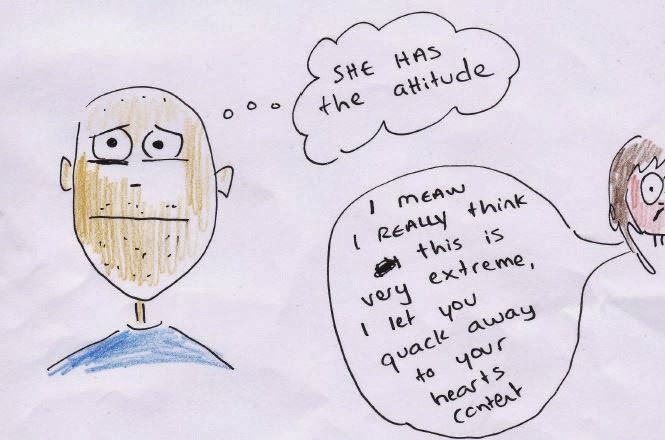 SHE HAS
the attitude
I MEAN
I REALLY think
this is
very extreme,
I let you
quack away
to your
hearts
content